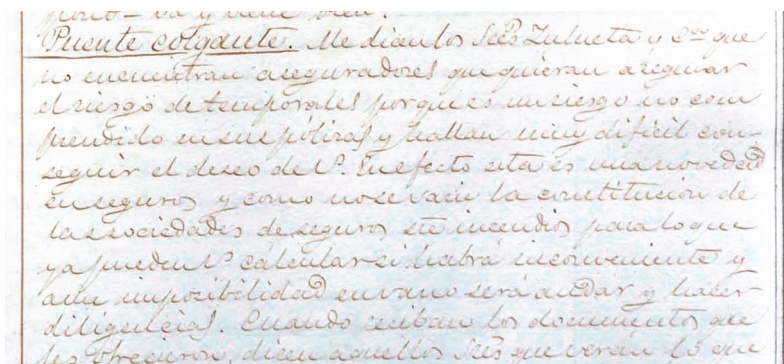 Puente colgante. Me dicen los Sres Zulueta y Cia que
no encuentran aseguradores que quieran asegurar
el riesgo de temporales porque es un riesgo no com
prendido en sus pólizas y hallan muy difícil con-
seguir el deseo de V. En efecto esta es una novedad
en seguros y como no se varíe la constitución de
las sociedades de seguros de incendios para lo que
ya pueden Vs calcular si habrá inconveniente y
aun imposibilidad en vano será andar y hacer
diligencias. Cuando reciban los documentos que
les ofrecieron, dicen aquellos Sres que verán lo que